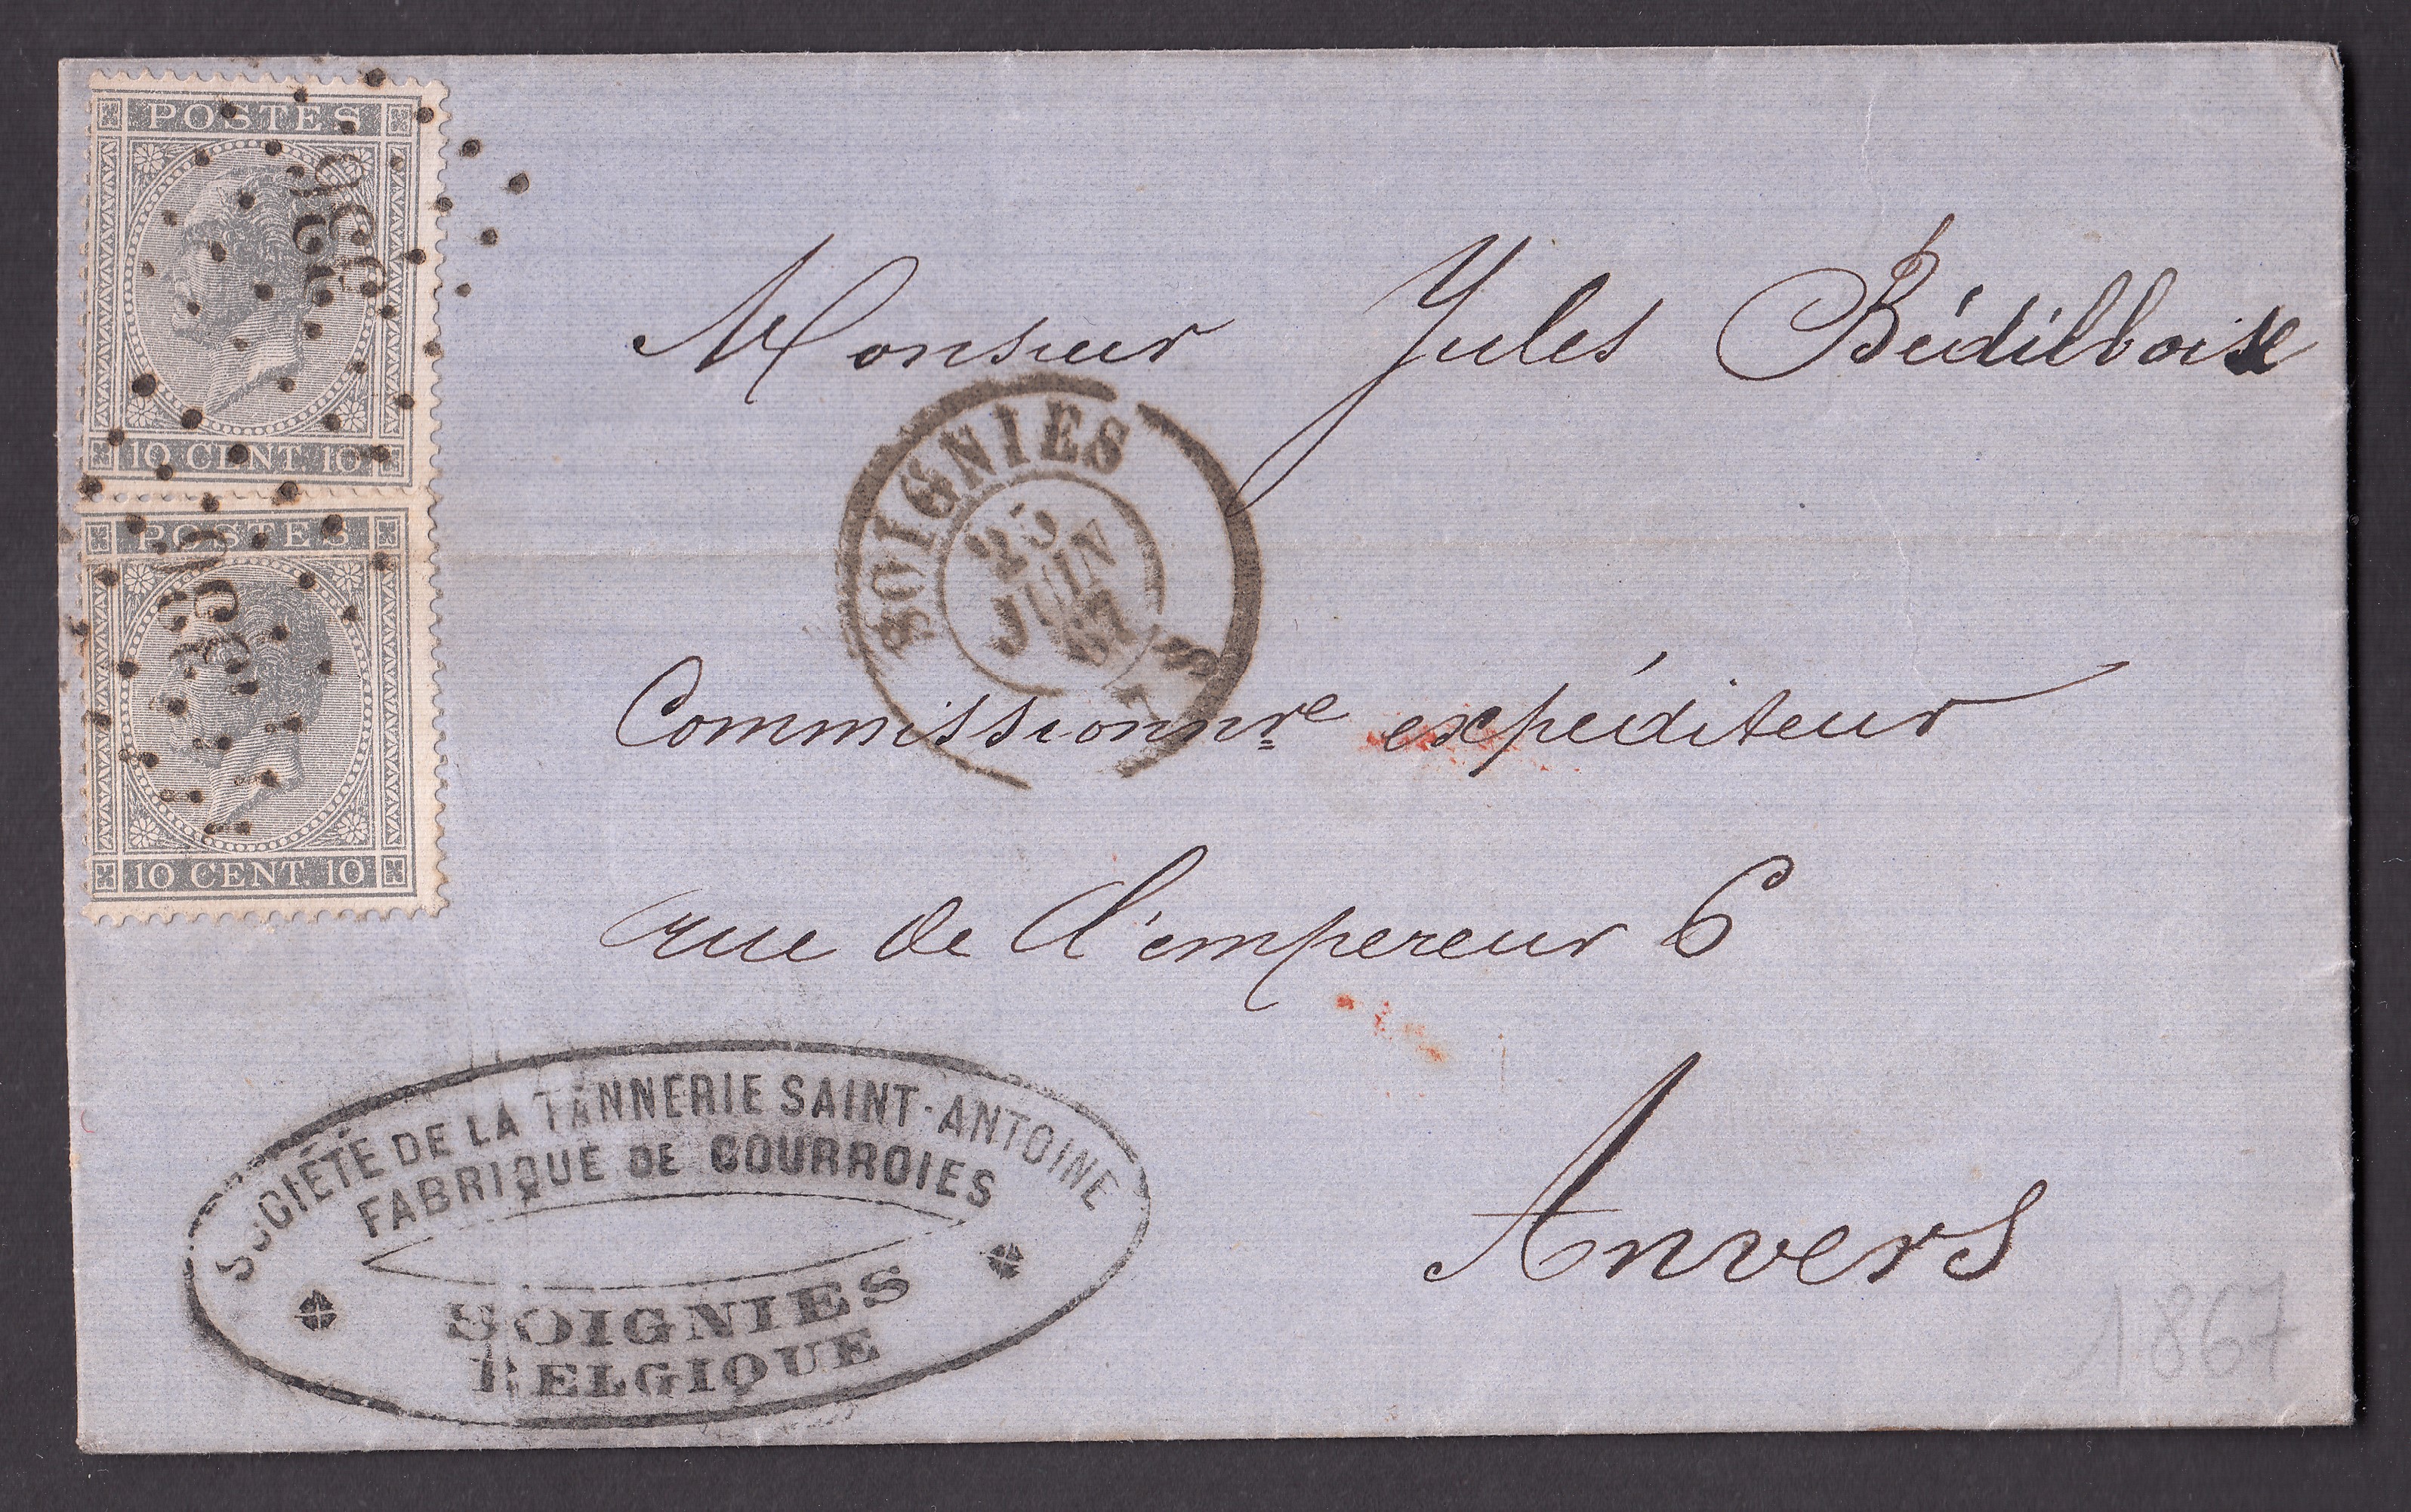 POSTES
10 CENT. 10
POSTES
10 CENT. 10
Monsieur Jules
SOIGNIES
25
JUIN
67
Commissionnre expéditeur
rue de l'empereur 6
Anvers
SOCIÉTÉ DE LA TANNERIE SAINT-ANTOINE
FABRIQUE DE COURROIES
SOIGNIES
BELGIQUE
1867